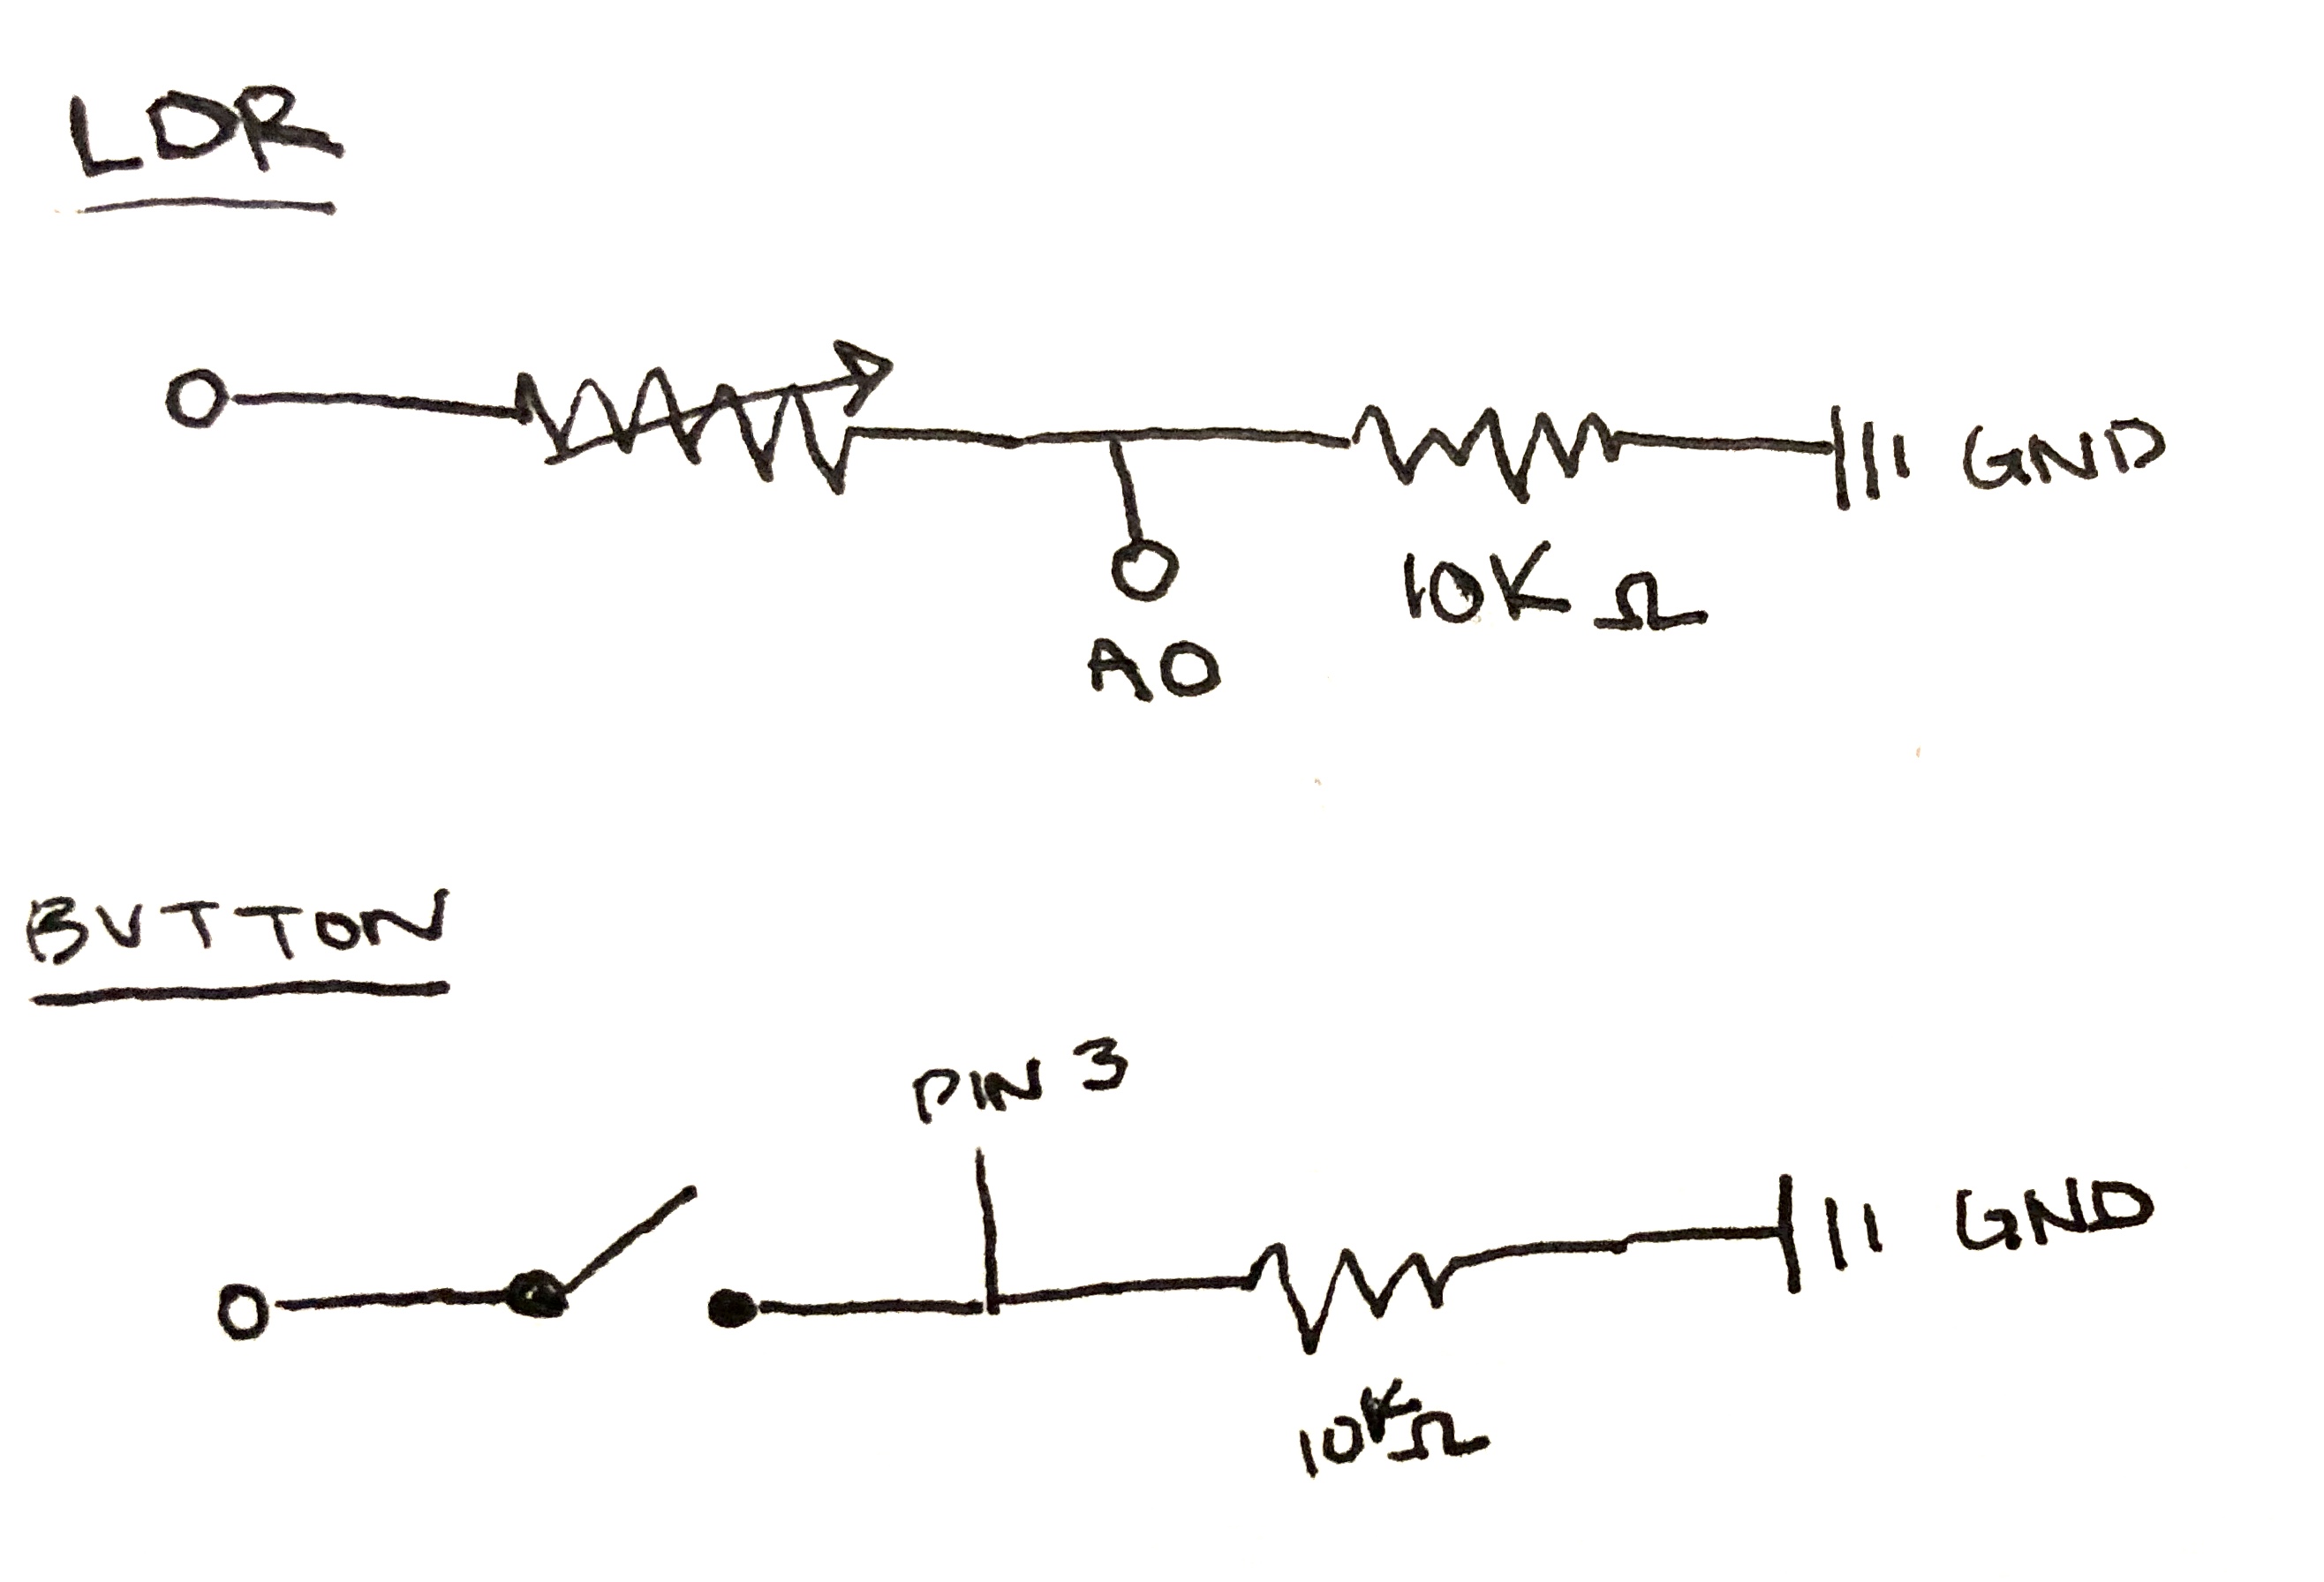 LDR
GND
10K Ω
A0
BUTTON
PIN 3
GND
10KΩ